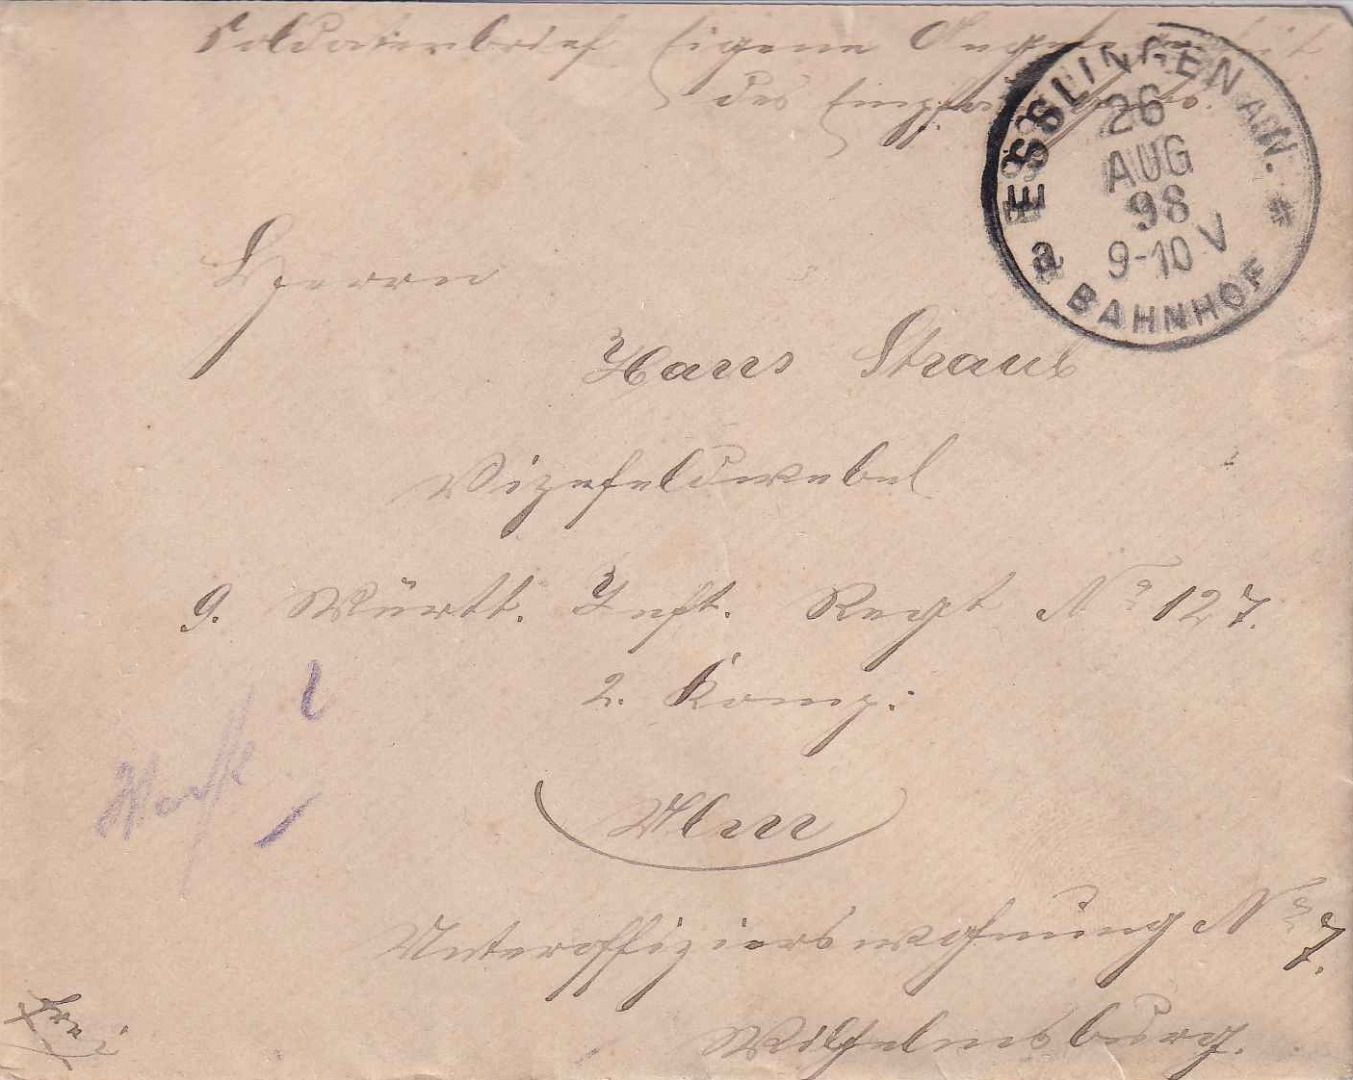 Soldatenbrief Eigene Angelegenheit
des Empfängers.
ESSLINGEN A.N.
26
AUG
98
9-10 V
a BAHNHOF *
Herrn
Hans Straub
Vizefeldwebel
9. Württ. Inft. Regt No 127.
2. Komp.
Ulm
Unteroffizierswohnung No 7.
Wilhelmsburg.
Frei